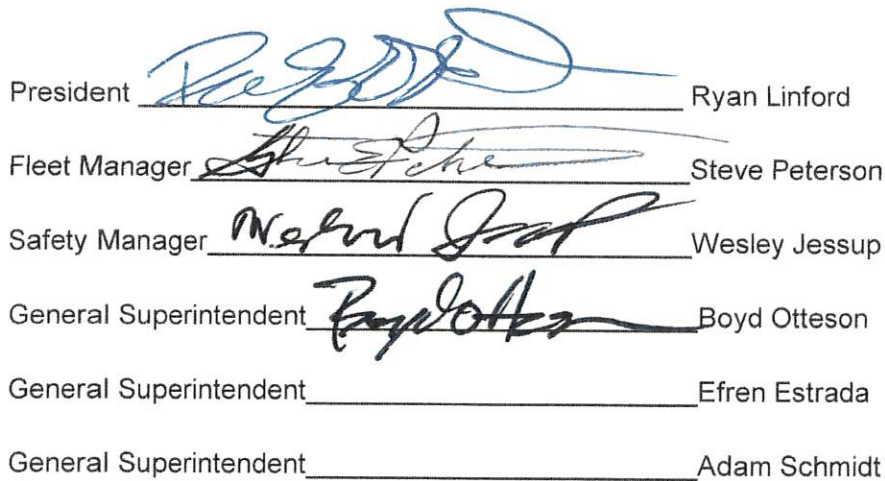 President Ryan Linford
Fleet Manager Steve Peterson
Safety Manager Wesley Jessup
General Superintendent Boyd Otteson
General Superintendent Efren Estrada
General Superintendent Adam Schmidt